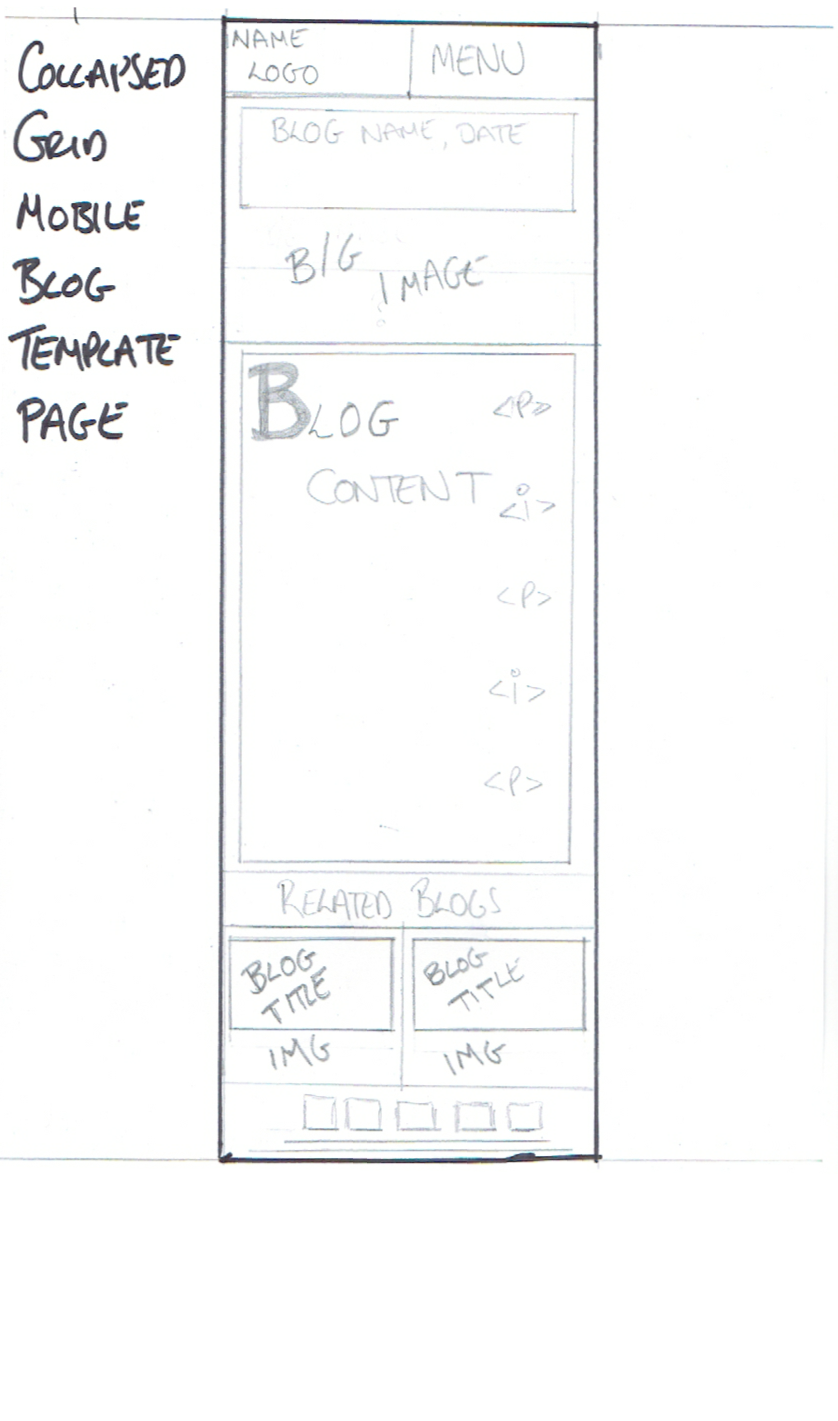 COLLAPSED
GRID
MOBILE
BLOG
TEMPLATE
PAGE
NAME
LOGO
MENU
BLOG NAME, DATE
BIG IMAGE
BLOG
<P>
CONTENT
<i>
<P>
<i>
<P>
RELATED BLOGS
BLOG
TITLE
IMG
BLOG
TITLE
IMG